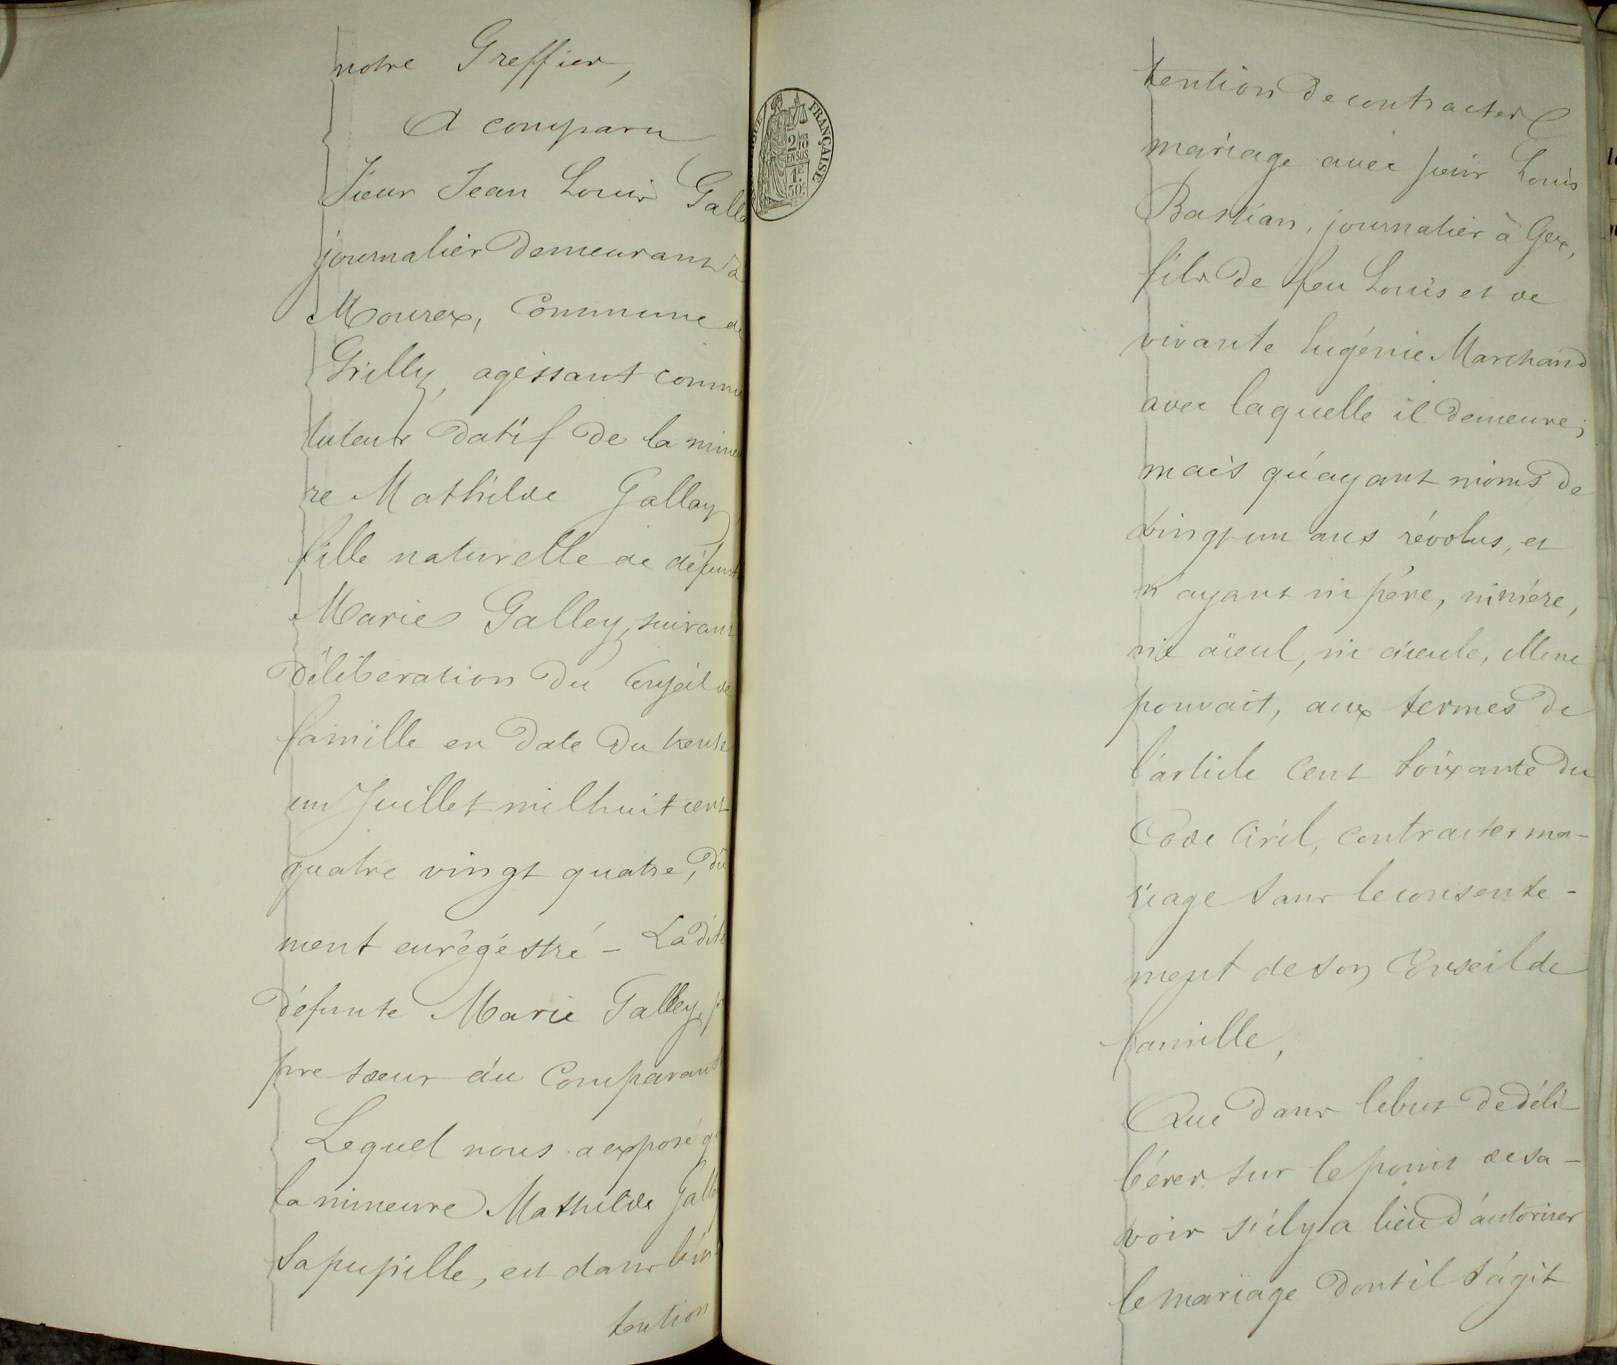 notre Greffier,
A comparu
Sieur Jean Louis Gall
journalier demeurant à
Mourex, Commune de
Grilly, agissant comme
tuteur datif de la mineu
re Mathilde Gallay
fille naturelle de défunte
Marie Galley, suivant
délibération du Conseil de
famille en date du trente
un Juillet mil huit cent
quatre vingt quatre, dû
ment enrégistré - La dite
défunte Marie Galley,
pre sœur du Comparant
Lequel nous a exposé q
la mineure Mathilde Gall
Sa pupille, est dans l'in
tention
FRANÇAISE
2/10
EN SUS
1F
50c
tention de contracter
mariage avec sieur Louis
Bastian, journalier à Gex,
fils de feu Louis et de
vivante Eugénie Marchand
avec laquelle il demeure;
mais qu'ayant moins de
vingt un ans révolus, et
n'ayant ni père, ni mère,
ni aïeul, ni aïeule, elle ne
pouvait, aux termes de
l'article Cent Soixante du
Code Civil, contracter ma-
riage sans le consente-
ment de son Conseil de
famille,
Que dans le but de déli
bérer sur le point de sa-
voir s'il y a lieu d'autoriser
le mariage dont il s'agit